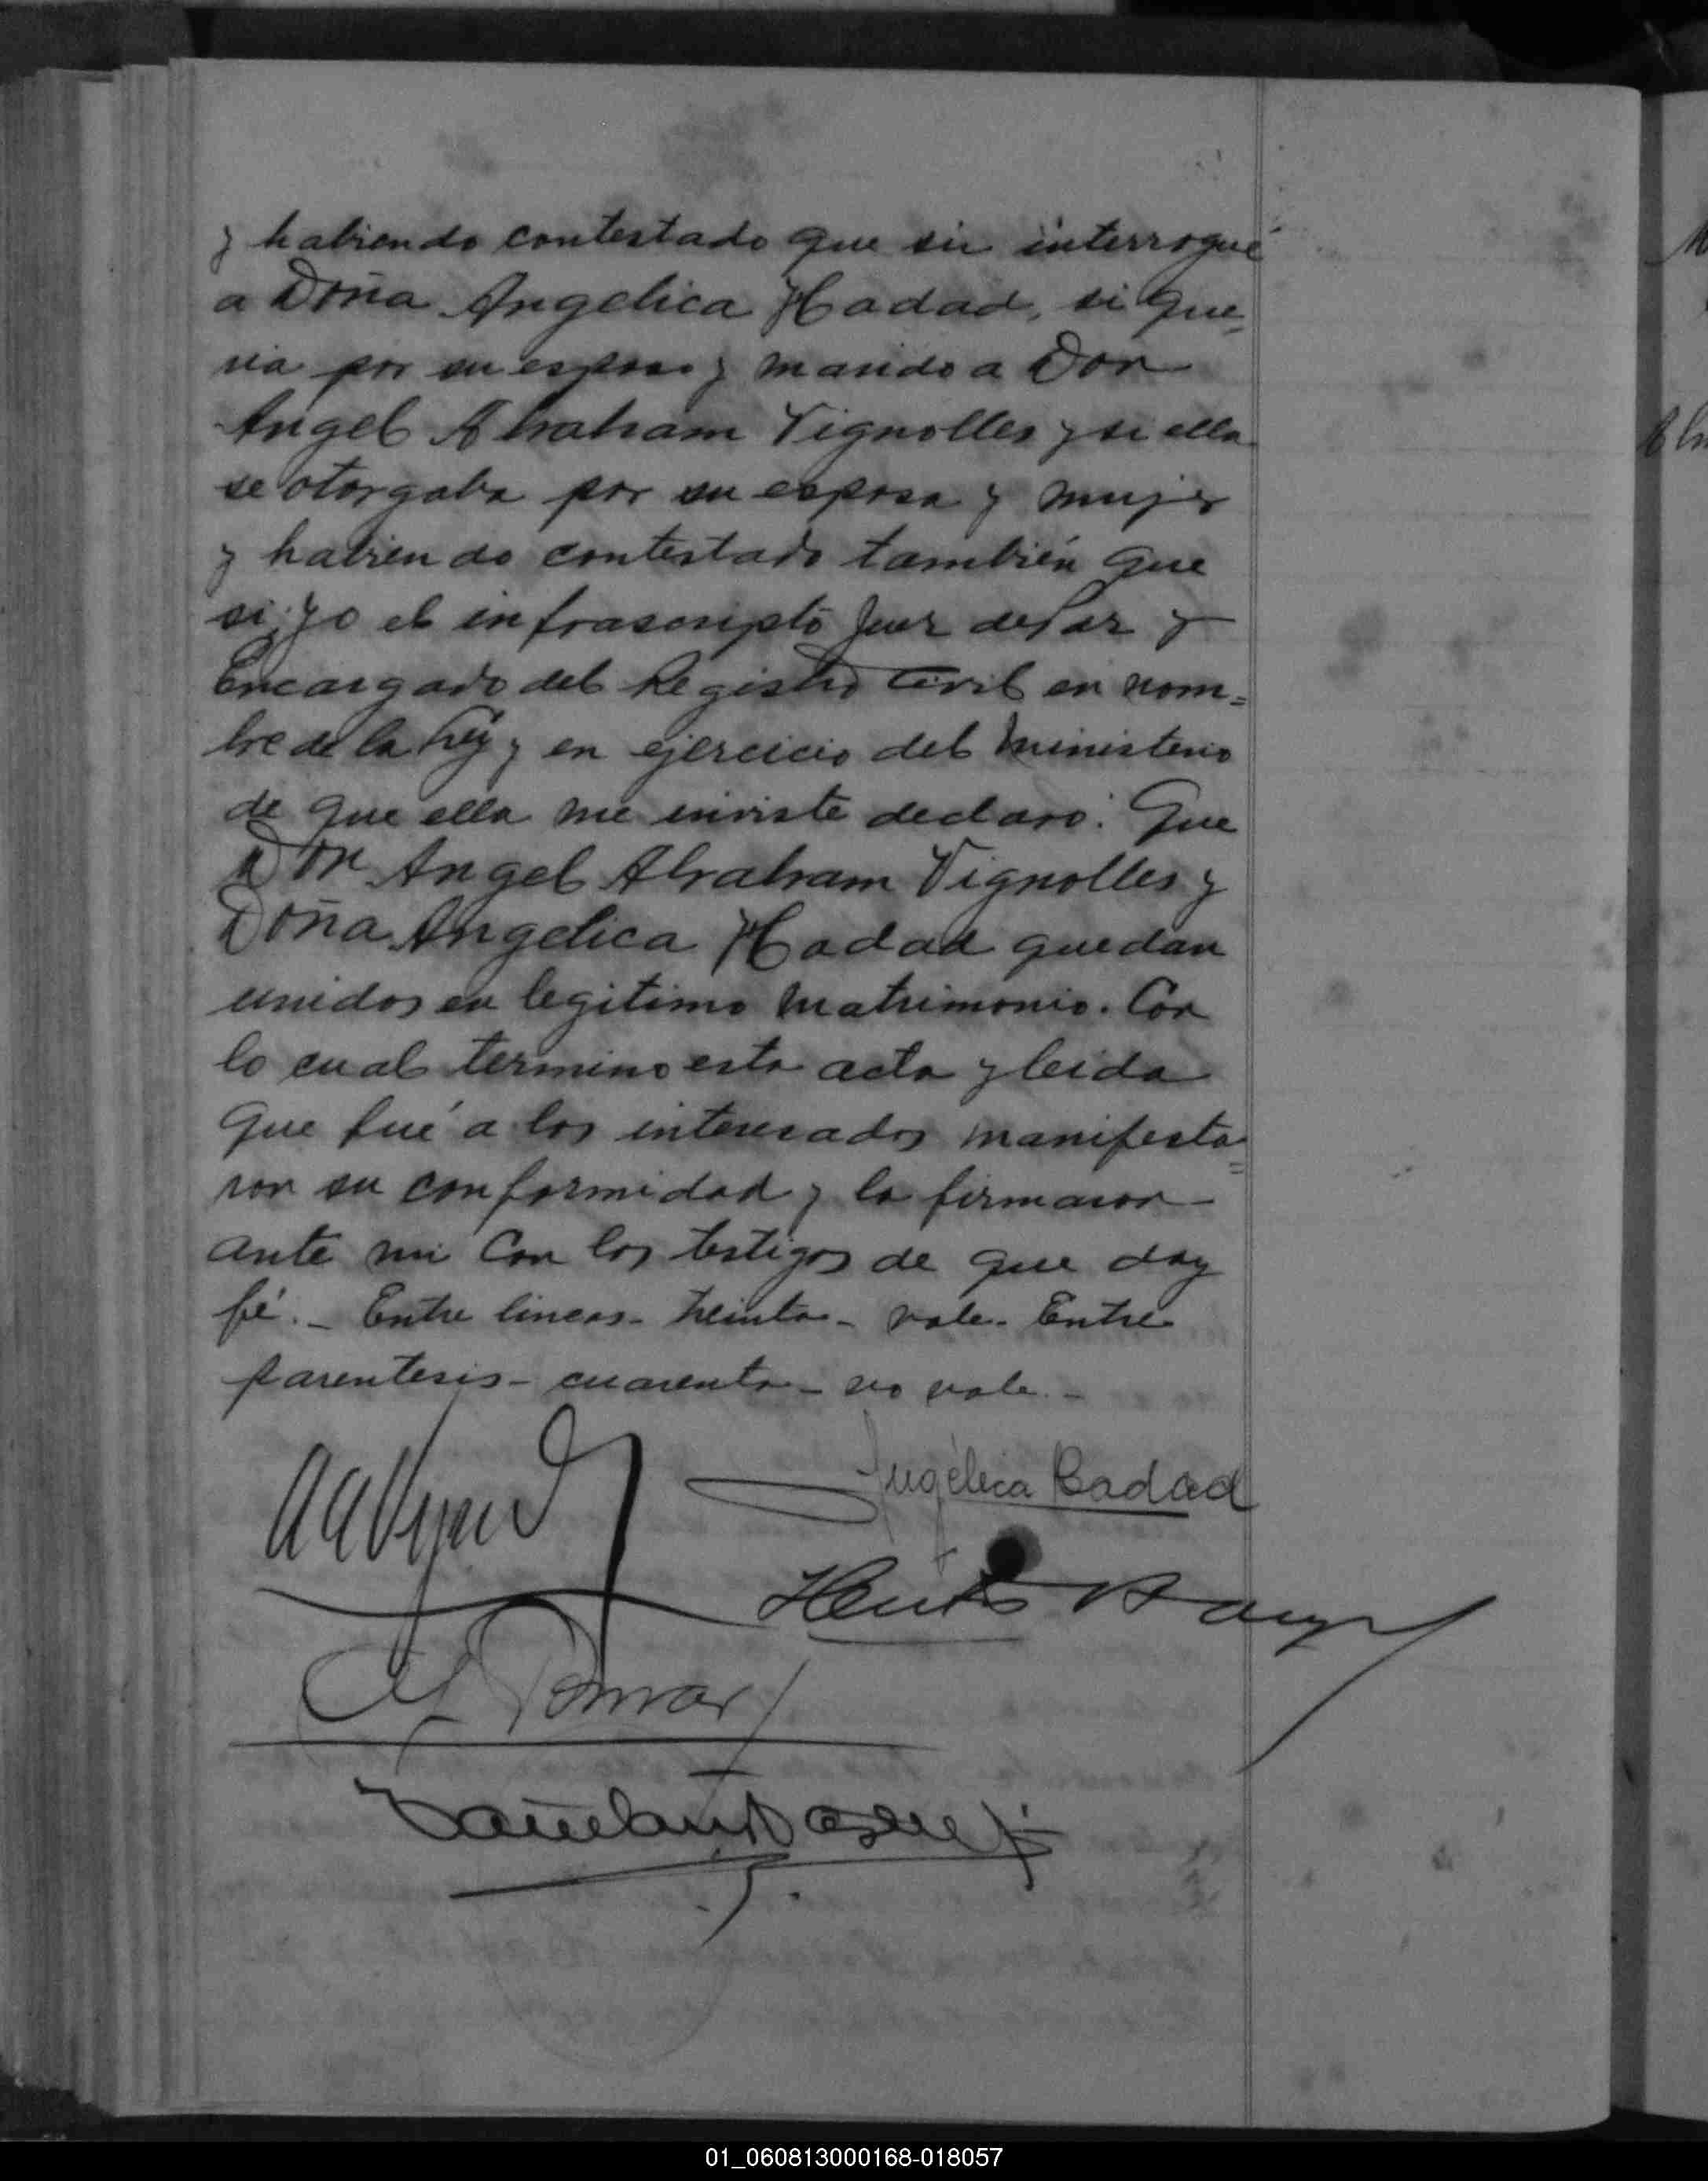 y habiendo contestado que si interrogué
a Doña Angelica Hadad, si que-
ria por su esposo y marido a Don
Angel Abraham Vignolles y si ella
se otorgaba por su esposa y mujer
y habiendo contestado también que
si, yo el infrascripto Juez de Paz y
Encargado del Registro Civil en nom=
bre de la ley y en ejercicio del ministerio
de que ella me inviste declaro: Que
Don Angel Abraham Vignolles y
Doña Angelica Hadad quedan
unidos en legitimo matrimonio. Con
lo cual termino esta acta y leida
que fué a los interesados manifesta=
ron su conformidad y la firmaron
ante mi con los testigos de que doy
fé. - Entre lineas - treinta - vale - Entre
parentesis - cuarenta - no vale. -
Angélica Badad
01_060813000168-018057